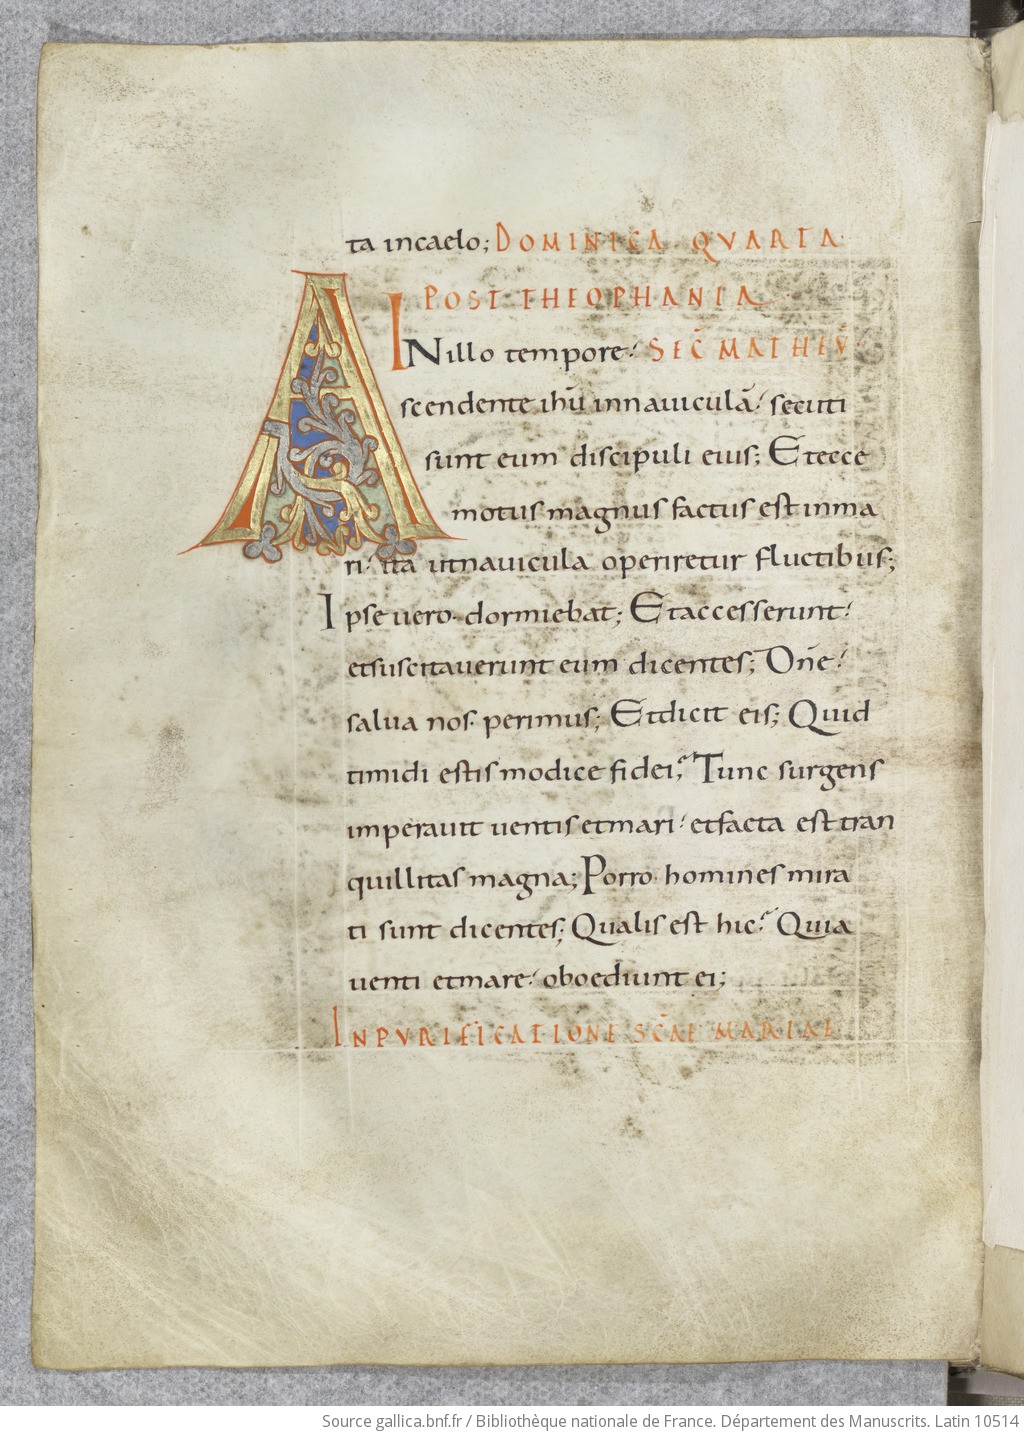 ta incaelo; DOMINICA QVARTA·
POST THEOPHANIA
INillo tempore· SEC̄ MATHEV̄
Ascendente ihū innauiculā· secuti
sunt eum discipuli eius; Etecce
motus magnus factus est inma
ri· ita utnauicula operiretur fluctibus;
Ipse uero· dormiebat; Etaccesserunt·
etsuscitauerunt eum dicentes; Dn̄e·
salua nos· perimus; Etdicit eis; Quid
timidi estis modice fidei; Tunc surgens
imperauit uentis etmari· etfacta est tran
quillitas magna; Porro· homines mira
ti sunt dicentes; Qualis est hic· Quia
uenti etmare· oboediunt ei;
INPVRIFICATIONE SC̄AE MARIAE
Source gallica.bnf.fr / Bibliothèque nationale de France. Département des Manuscrits. Latin 10514